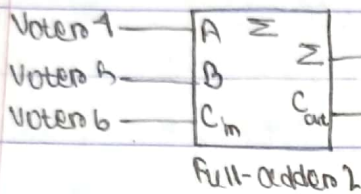 Voter 4 A Σ
Σ
Voter 5 B
Voter 6 Cin Cout
Full-adder 2